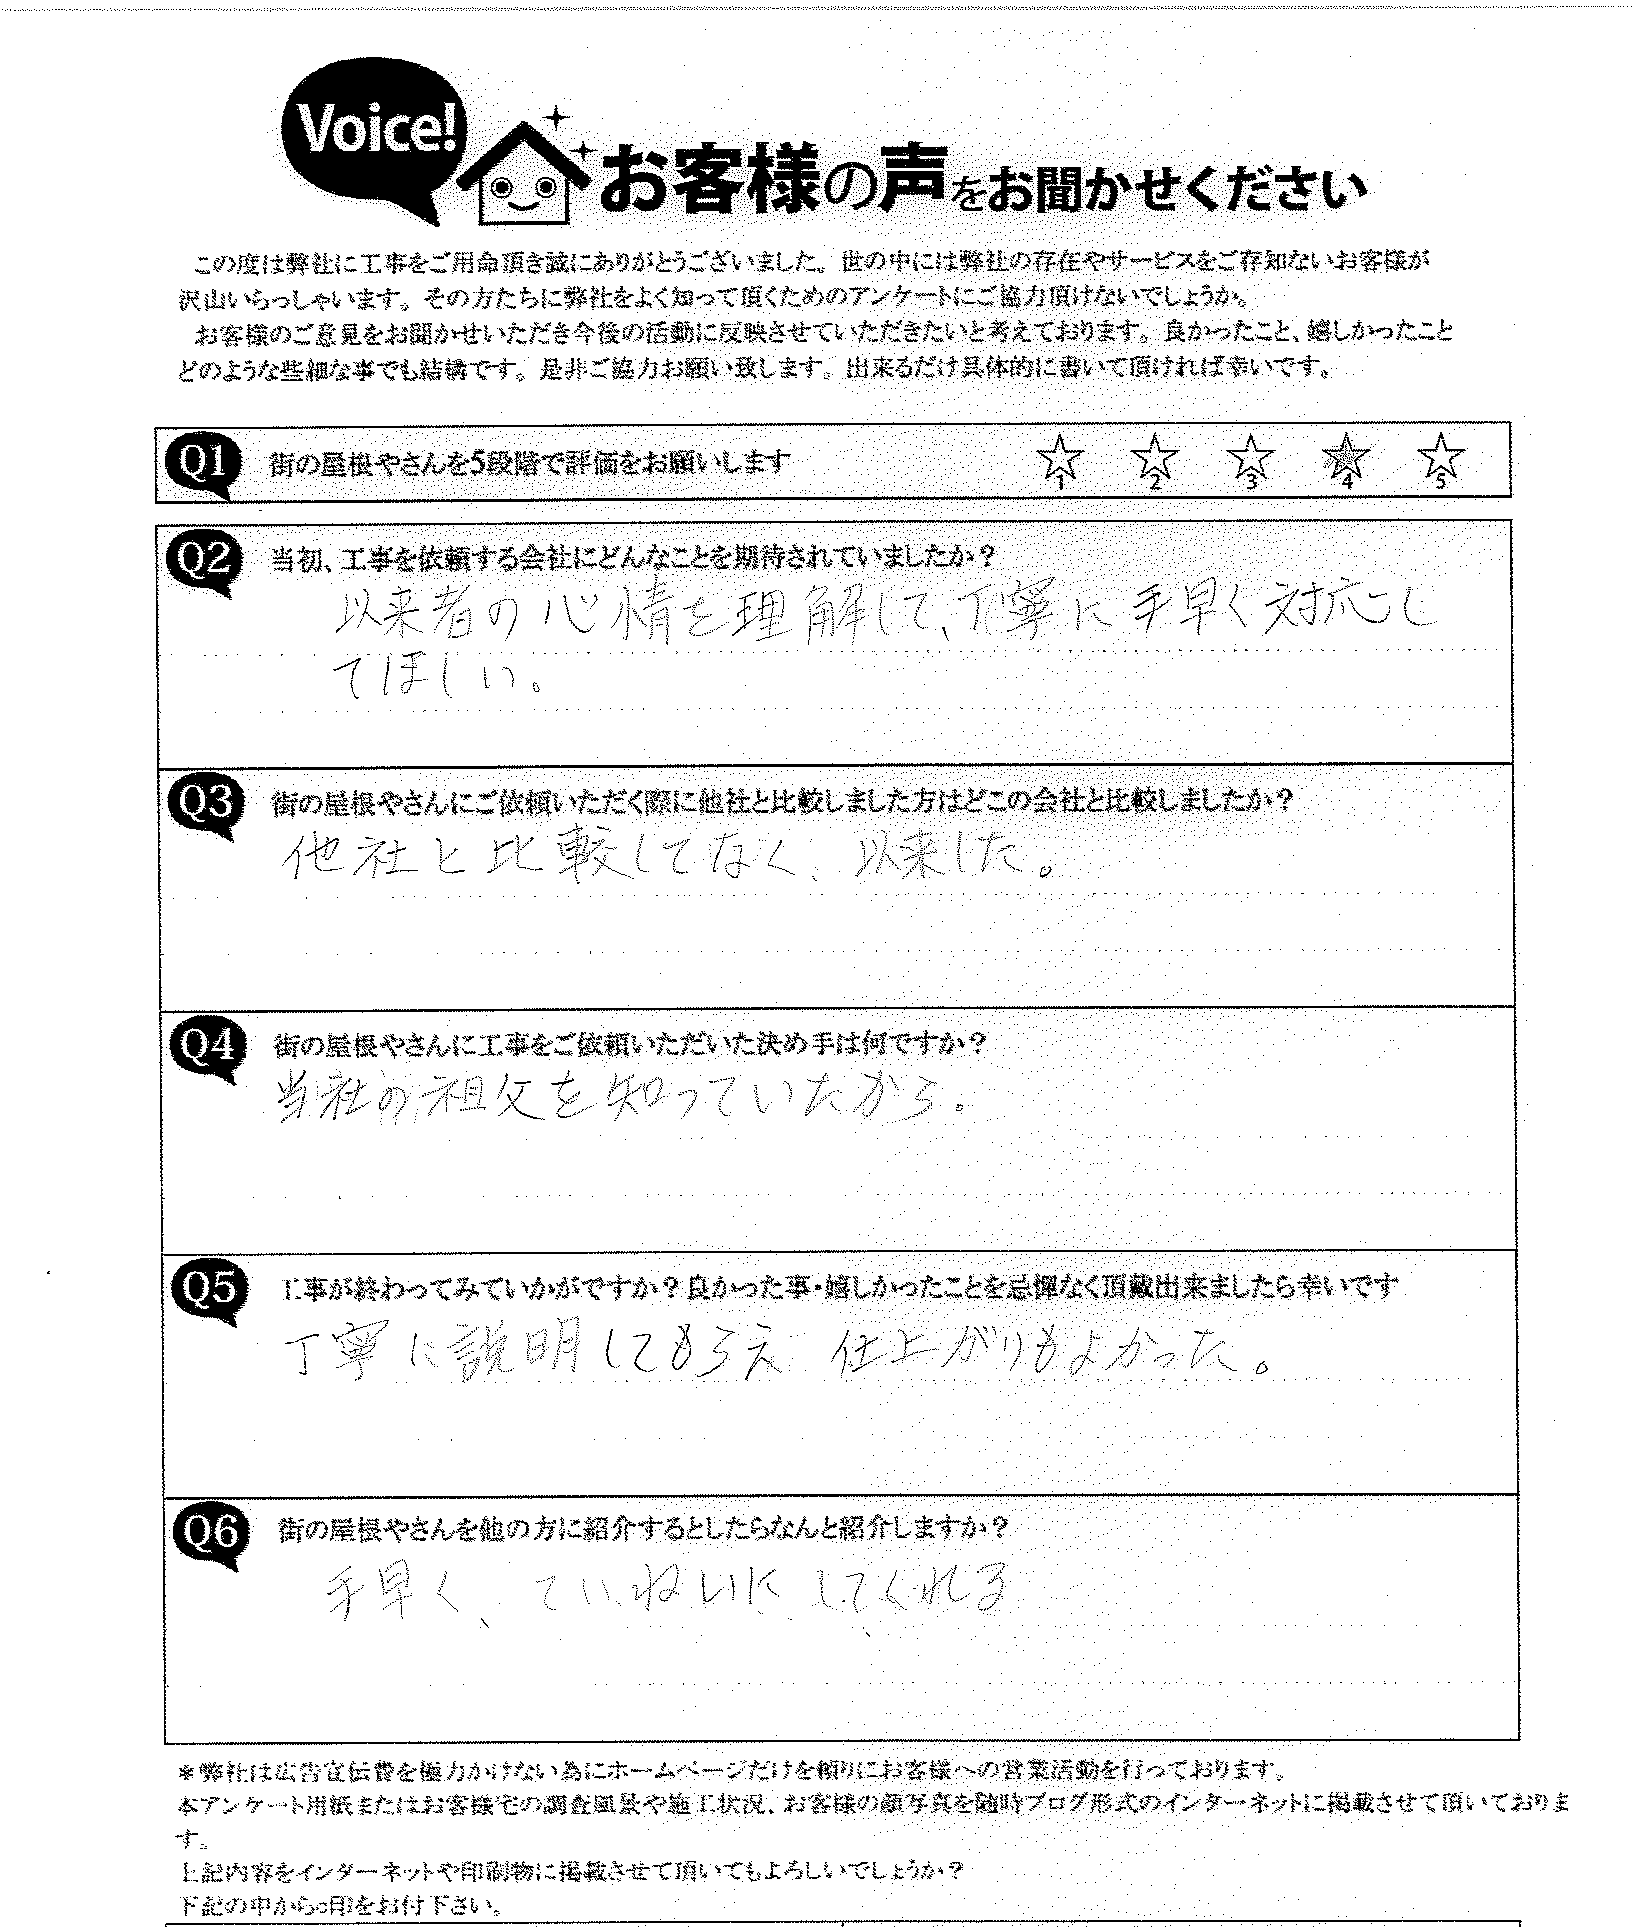 Voice!
お客様の声をお聞かせください
この度は弊社に工事をご用命頂き誠にありがとうございました。世の中には弊社の存在やサービスをご存知ないお客様が
沢山いらっしゃいます。その方たちに弊社をよく知って頂くためのアンケートにご協力頂けないでしょうか。
お客様のご意見をお聞かせいただき今後の活動に反映させていただきたいと考えております。良かったこと、嬉しかったこと
どのような些細な事でも結構です。是非ご協力お願い致します。出来るだけ具体的に書いて頂ければ幸いです。
Q1 街の屋根やさんを5段階で評価をお願いします 1 2 3 4 5
Q2 当初、工事を依頼する会社にどんなことを期待されていましたか?
以来者の心情を理解して、丁寧に手早く対応し
てほしい。
Q3 街の屋根やさんにご依頼いただく際に他社と比較しました方はどこの会社と比較しましたか?
他社と比較してなく、以来した。
Q4 街の屋根やさんに工事をご依頼いただいた決め手は何ですか?
当社の祖父を知っていたから。
Q5 工事が終わってみていかがですか?良かった事・嬉しかったことを忌憚なく頂戴出来ましたら幸いです
丁寧に説明してもらえ 仕上がりもよかった。
Q6 街の屋根やさんを他の方に紹介するとしたらなんと紹介しますか?
手早く、ていねいにしてくれる
*弊社は広告宣伝費を極力かけない為にホームページだけを頼りにお客様への営業活動を行っております。
本アンケート用紙またはお客様宅の調査風景や施工状況、お客様の顔写真を随時ブログ形式のインターネットに掲載させて頂いておりま
す。
上記内容をインターネットや印刷物に掲載させて頂いてもよろしいでしょうか?
下記の中から○印をお付下さい。